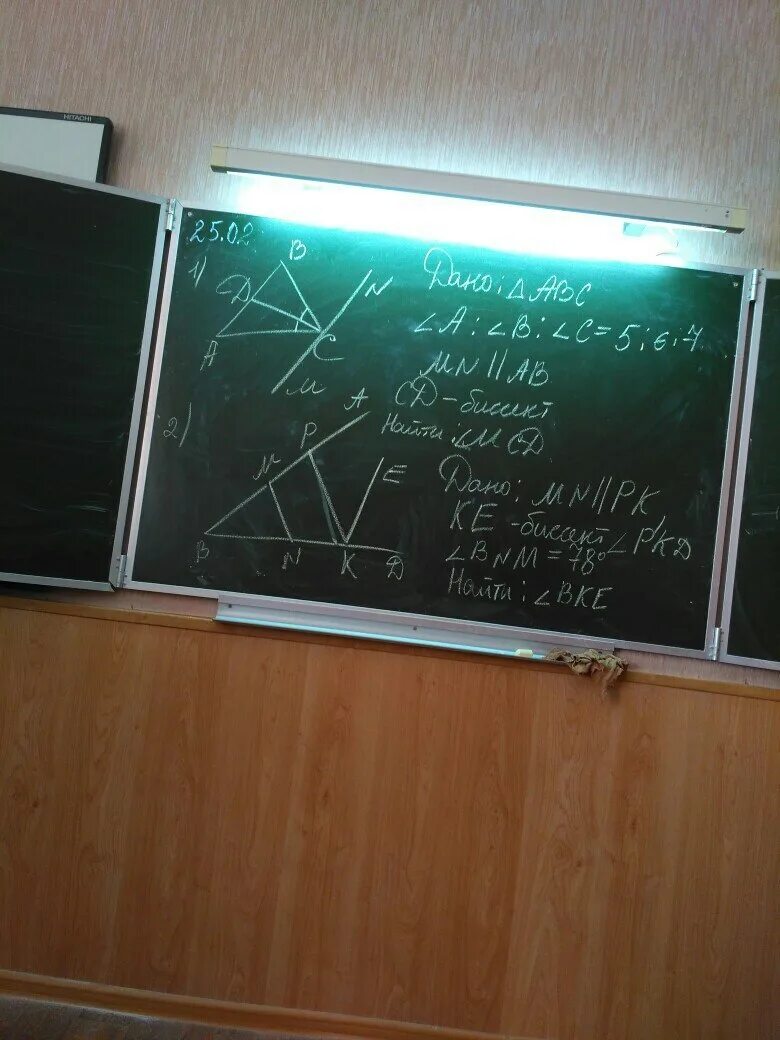 HITACHI
25.02
1)
B
D
N
A
C
M
Дано: △ABC
∠A : ∠B : ∠C = 5 : 6 : 7
MN || AB
CD - биссект
Найти: ∠MCD
2)
A
P
M
E
B
N
K
D
Дано: MN || PK
KE - биссект ∠PKD
∠BNM = 78°
Найти: ∠BKE